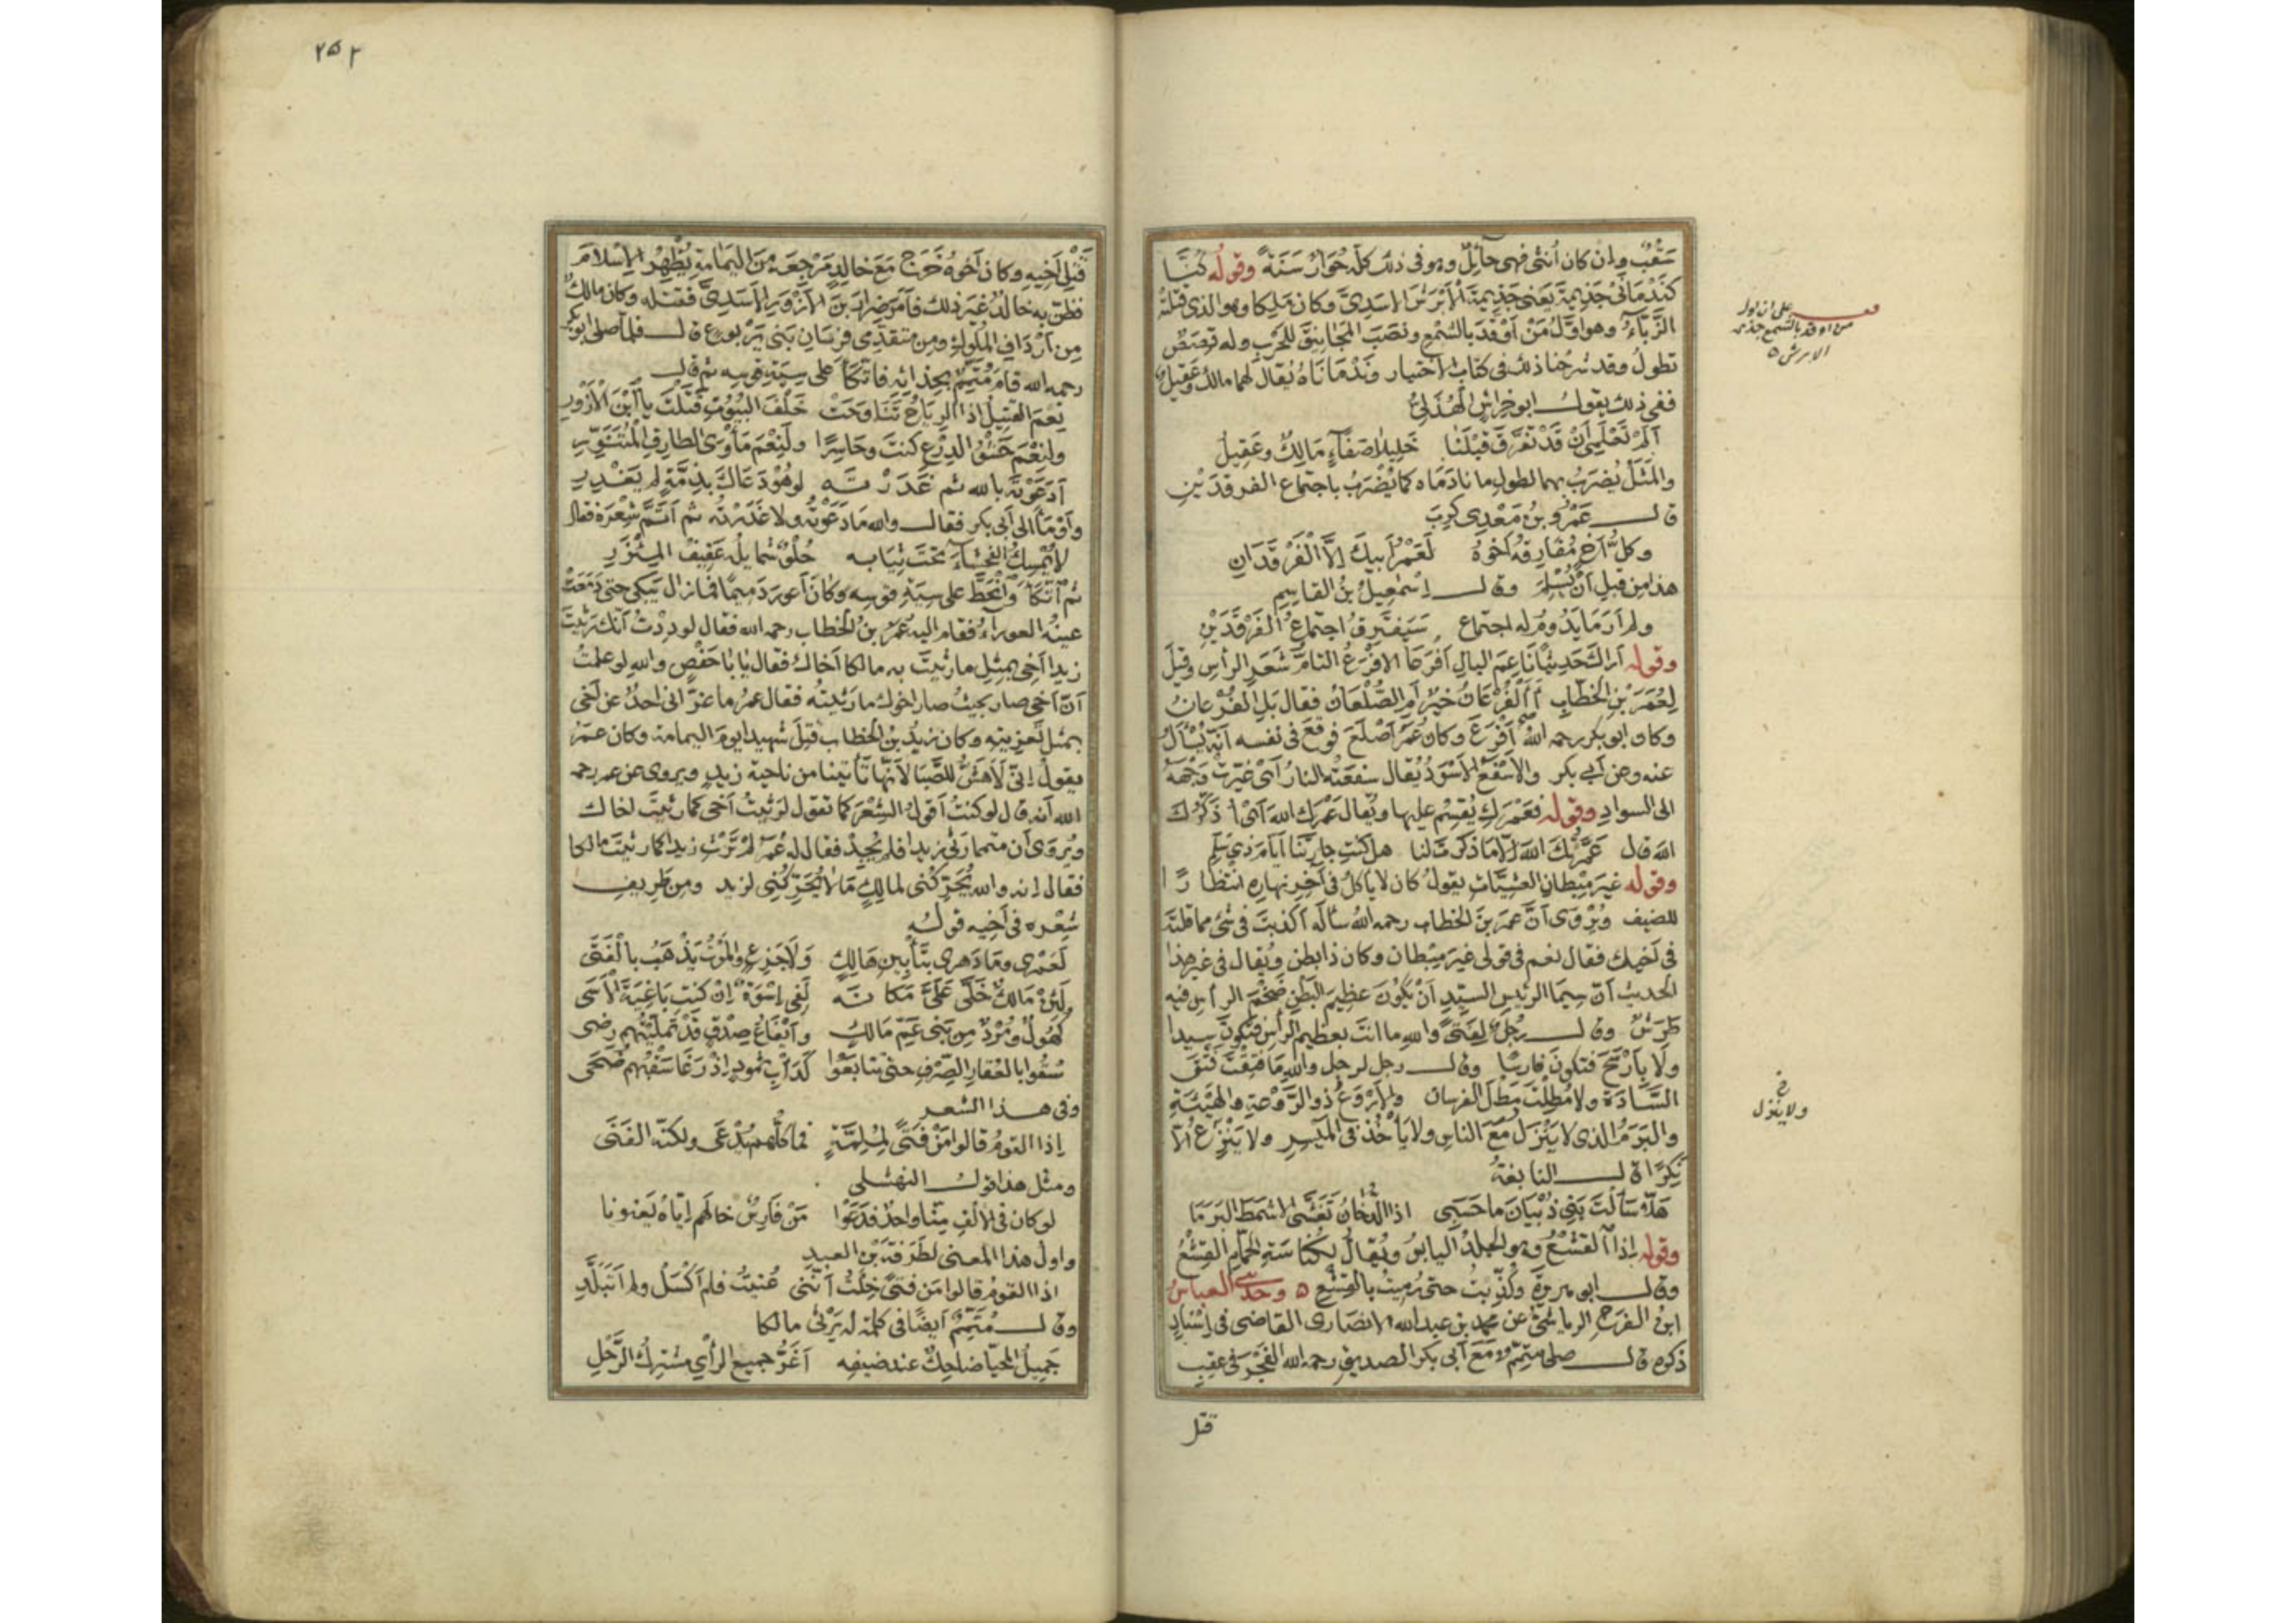 سَقْبٌ وان كان أنثى فهى حائِلٌ وهو فى ذلك كله حُوَارٌ سَنَةً وقوله كُنَّا
كَنَدْمَانَىْ جَذِيمَةَ يَعنى جَذِيمَةَ الأَبْرَشَ الاسَدِىَّ وكان مَلِكا وهو الذى قتلتْهُ
الزَّبَّاءُ وهو اوَّلُ مَنْ أَوْقَدَ بالشَّمْع ونَصَبَ المَجَانِيقَ للحَرْب وله قِصَصٌ
تطولُ وقد شرحنا ذلك فى كتاب الاختيار ونَدْمَانَاهُ يُقال لهما مالك وعَقِيلٌ
ففى ذلك يقول ابو خِراشٍ الهُذَلِىُّ
أَلَمْ تَعْلَمِى أَنْ قَدْ تَفَرَّقَ قَبْلَنَا خَلِيلَا صَفَاءٍ مَالِكٌ وعَقِيلُ
والمَثَلُ يُضرَبُ بهما لطول ما نادَمَاه كما يُضْرَبُ باجتماع الفرقدَيْنِ
قال عَمْرُو بنُ مَعْدِى كَرِبَ
وكلُّ أخٍ مُفَارِقُهُ أخُوهُ لَعَمْرُ أَبِيكَ إِلَّا الْفَرْقَدَانِ
هذا من قبل أَنْ يُسْلِمَ وقال إسْمعِيلُ بنُ القاسِمِ
ولم أرَ مَا يَدُومُ له اجتماع سَيَفْتَرِقُ اجتماعُ الفَرْقَدَيْنِ
وقوله أراكَ حَدِيثًا نَاعِمَ البالِ أفرعَا الافْرَعُ التامُّ شَعَرِ الرأسِ وقيلَ
لِعُمَرَ بْنِ الخَطّابِ أَالْفُرْعَانُ خيرٌ أمِ الصُّلْعَانُ فقال بَلِ الفُرْعانُ
وكان ابو بكر رحمه اللهُ أفْرَعَ وكان عُمَرُ أصْلَعَ فوقَعَ فى نفسه أنَّه يُسْأَلُ
عنه وعن أبى بكر والاسْفَعُ الأسْوَدُ يُقال سفعَتْه النارُ أىْ غيّرتْ وَجْهَهُ
الى السوادِ وقوله فعَمْرَكِ يُقْسِمُ عليها ويُقالُ عَمْرَكَ اللهَ أىْ أُذَكِّرُكَ
اللهَ قال عَمَّرْتُكِ اللهَ إلّا مَا ذكرتِ لنا هل كنتِ جارتَنا أيامَ ذى سَلَمِ
وقوله غيرَ مِبْطانِ العشيَّاتِ يقولُ كان لا ياكلُ فى آخِرِ نهارِه انتظارًا
للضيف ويُرْوى أنَّ عمرَ بنَ الخطاب رحمه اللهُ سأله أكذبتَ فى شىءٍ مما قلتَه
فى أخيك فقال نعم فى قولى غيرَ مِبْطان وكان ذا بطنٍ ويُقال فى غير هذا
الحديث أنّ سِيمَا الرئيسِ السيّدِ أَنْ يَكُونَ عظِيمَ البَطْنِ ضَخْمَ الرأسِ فيه
طَرَشٌ وقال رجُلٌ لِفتًى والله ما انتَ بعظيمِ الرأسِ فتكونَ سيدا
ولا بِأَرْسَحَ فتكونَ فارسًا وقال رجل لرجل واللهِ ما فتقْتَ فَتْقَ
السَّادَةِ ولا مُطِلْتَ مَطْلَ الفرسان والأرْوَعُ ذو الرَّوْعةِ والهَيْئةِ
والبَرَمُ الذى لا يَنْزِلُ مَعَ الناسِ ولا يَأخُذ فى المَيْسِرِ ولا ينزع الّا
نَكِدًا قال النابغةُ
هَلّا سَأَلْتَ بَنِى ذُبْيَانَ ما حَسَبِى اذا الدُّخانُ تَغَشّى الاشمَطَ البَرَمَا
وقوله إذا القَشْعُ وهو الجِلدُ اليابسُ ويُقالُ لكُناسَةِ الحَمّامِ القَشْعُ
وقال ابو هريرة وكُذِّبتُ حتى رُمِيتُ بالقَشْعِ ٥ وحدثنى العباسُ
ابنُ الفرَجِ الرياشىُّ عن محمد بن عبد الله الانصارى القاضى فى إسْنادٍ
ذكره قال صلى متمّم مَعَ أبى بكر الصديق رحمه الله الفَجْرَ فى عقِيب
قتل
على ان اول
من اوقد بالشمع جذيمة
الابرش ٥
خ
ولا ينزل
٢٥٢
قَتْلِ أخِيهِ وكان أخوهُ خرَج مَعَ خالدٍ مَرْجِعَه مِنَ اليَمَامةِ يُظْهِرُ الإسْلامَ
فظنّ به خالدٌ غيرَ ذلك فأمَرَ ضِرارَ بنَ الأزْوَرِ الأسَدِىَّ فقتله وكان مالكٌ
مِن أرْدَافِ المُلوكِ ومن متقدِّمى فُرْسَانِ بَنى يَرْبوعٍ قال فلمّا صلى ابو بكر
رحمه الله قامَ مُتَمِّمٌ بحِذائِه فاتّكأ على سِيَةِ قوسِه ثم قال
نِعْمَ القَتِيلُ إذا الرياحُ تَنَاوَحَتْ خَلْفَ البُيُوتِ قَتَلْتَ يا ابْنَ الأزْوَرِ
ولنِعْمَ حَشْوُ الدِّرْع كنتَ وحَاسِرًا ولَنِعْمَ مَأْوَى الطارِقِ المُتَنَوِّرِ
أدَعَوْتَه بالله ثم غَدَرْتَهُ لوهُوْ دَعَاكَ بِذِمَّةٍ لم يَغْدِرِ
وأوْمَأَ الى أبى بكر فقال والله مَا دَعَوْتُه ولا غَدَرْتُه ثم أتَمَّ شِعْرَهُ فقال
لا يُمْسِكُ الفَحْشَاءَ تحتَ ثِيَابِه حُلْوٌ شمايِلُهُ عَفِيفُ المِئْزَرِ
ثم اتّكأ وانحَطَّ على سِيَةِ قوسِه وكَانَ أعورَ دَميمًا فما زال يَبْكِى حتى دَمَعَتْ
عينُه العوراءُ فقام اليه عُمَرُ بنُ الخطاب رحمه الله فقال لوددْتُ أنّك رثَيْتَ
زيدا أخِى بمثلِ ما رثَيْتَ به مالكا أخاكَ فقال يا با حَفْصٍ والله لو علمتُ
أنّ أخى صار بحيثُ صار اخوك ما رَثَيتُه فقال عمرُ ما عزّانى احدٌ عن أخى
بمثلِ تَعزِيتِه وكان زيدُ بن الخطاب قُتِلَ شهيدا يومَ اليمامة وكان عمَرُ
يقولُ إنّى لَأهَشُّ للصَّبَا لأنّهَا تأتينا من ناحية زيدٍ ويروى عن عمر رحمه
الله أنه قال لو كنتُ أقولُ الشِعْرَ كما تقول لرثيتُ أخى كما رثيتَ أخاك
ويُروى أن متمما رثى زيدا فلم يُجِدْ فقال له عُمَرُ لمْ تَرْثِ زيدا كما رثيتَ مالكا
فقال إنه والله يُحَرِّكُنى لمالِكٍ مَا لا يُحَرِّكُنى لزيد ومن طَرِيفِ
شِعْرِه فى أخِيه قولُه
لَعَمْرى وما دَهرى بتَأْبِينِ هَالِكٍ ولا جَزِعٍ والموْتُ يَذْهَبُ بالْفَتَى
لَئِنْ مَالكٌ خَلّى عَلَىَّ مَكَانَهُ لَفِى إسْوَةٍ إنْ كنتِ باغِيَةَ الأسَى
كُهُولٌ ومُرْدٌ مِن بَنى عَمِّ مَالكٍ وأيْفَاعُ صِدْقٍ قَدْ تَمَلّيْتُهم رِضى
سُقُوا بالعُقارِ الصِّرْفِ حتى تتابَعُوا كَدَأْبِ ثمودٍ إذْ رَغَا سَقْبُهم ضُحَى
وفى هذا الشعر
إذا القومُ قالوا مَنْ فَتًى لِمُلِمَّةٍ فما كُلُّهم يُدْعَى ولكنّه الفَتَى
ومثل هذا قول النهشلى
لو كان فى الألفِ مِنّا واحدٌ فدَعَوْا مَنْ فَارِسٌ خالَهم إيّاهُ يَعْنونا
واول هذا المعنى لطَرَفَةَ بْنِ العبدِ
اذا القومُ قالوا مَن فتًى خِلْتُ أنّنى عُنيتُ فلم أكْسَلْ ولم أتَبَلَّدِ
وقال مُتَمِّمٌ أيضًا فى كلمة له يَرْثى مالكا
جَمِيلُ المحيّا ضاحِكٌ عند ضيفِه أغَرُّ جميعُ الرأىِ مشترَكُ الرَّحْلِ